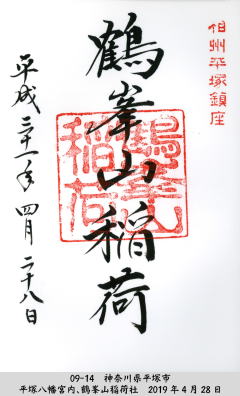 相州平塚鎮座
鶴峯山稲荷
鶴峯山稲荷
平成三十一年四月二十八日
09-14 神奈川県平塚市
平塚八幡宮内、鶴峯山稲荷社 2019年4月28日